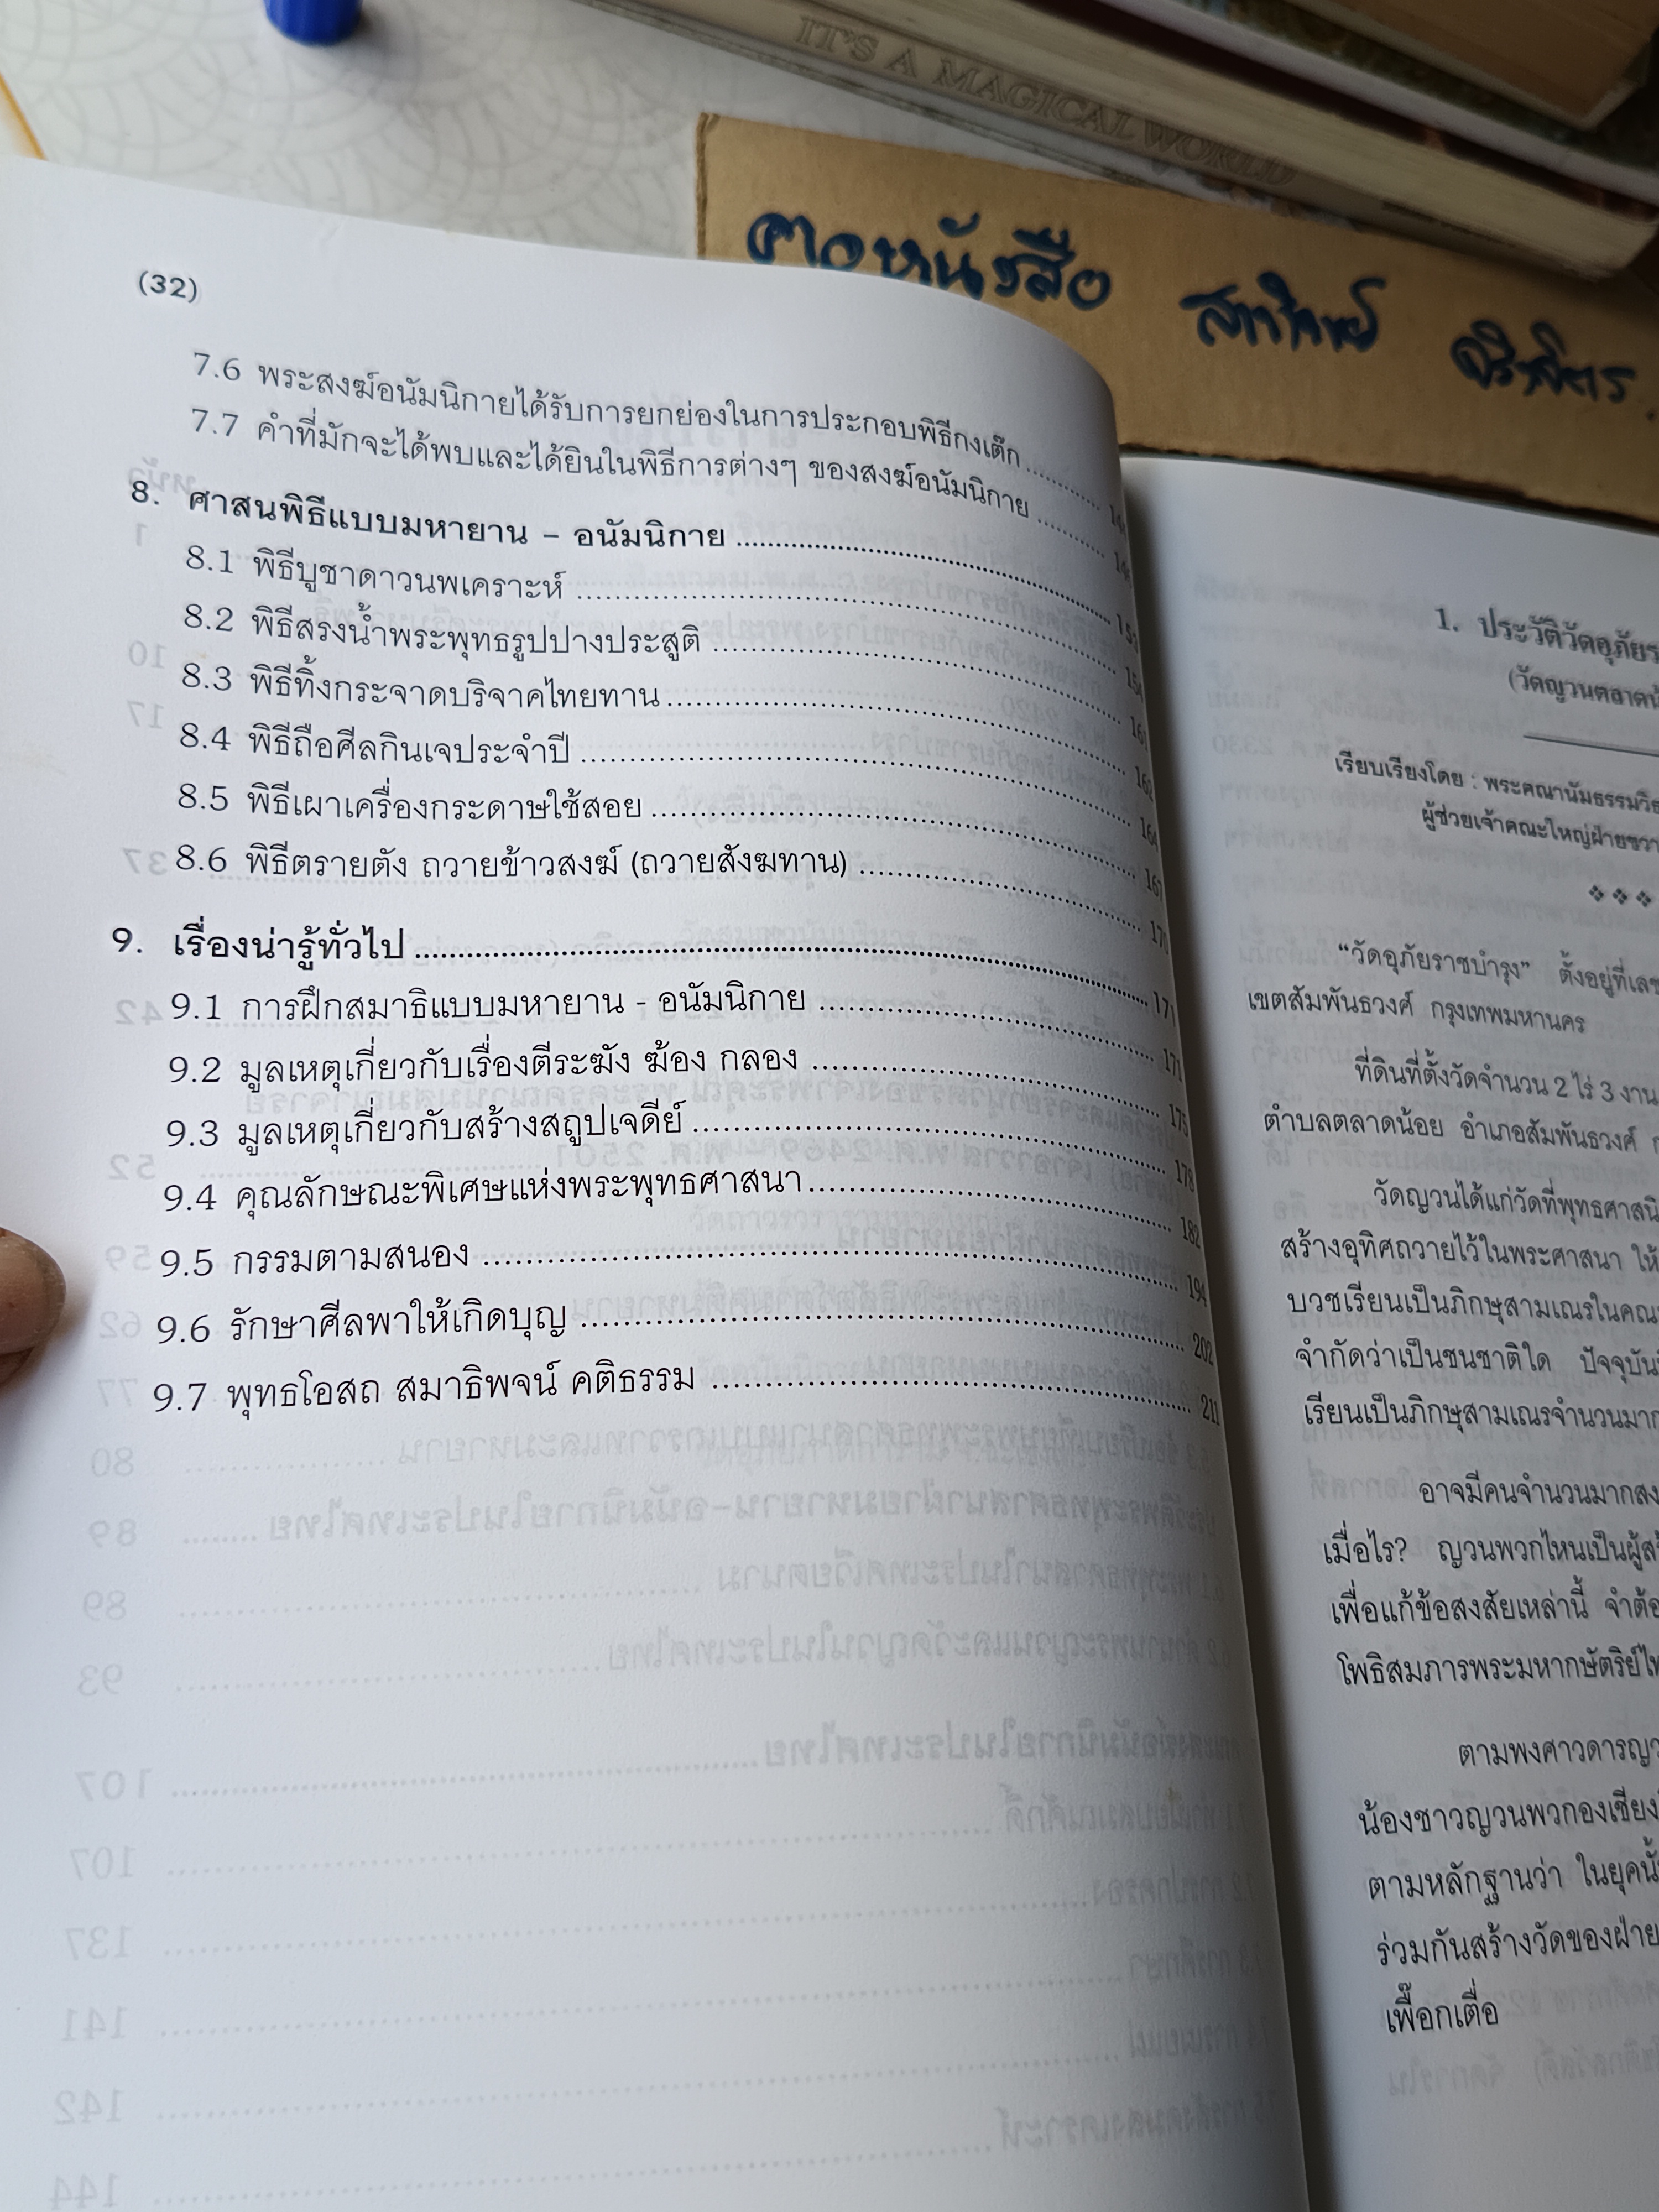 IT'S A MAGICAL WORLD
คอหนังสือ
(32)
7.6 พระสงฆ์อนัมนิกายได้รับการยกย่องในการประกอบพิธีกงเต๊ก
7.7 คำที่มักจะได้พบและได้ยินในพิธีการต่างๆ ของสงฆ์อนัมนิกาย
8. ศาสนพิธีแบบมหายาน – อนัมนิกาย
8.1 พิธีบูชาดาวนพเคราะห์
8.2 พิธีสรงน้ำพระพุทธรูปปางประสูติ
8.3 พิธีทิ้งกระจาดบริจาคไทยทาน
8.4 พิธีถือศีลกินเจประจำปี
8.5 พิธีเผาเครื่องกระดาษใช้สอย
8.6 พิธีตรายตัง ถวายข้าวสงฆ์ (ถวายสังฆทาน)
9. เรื่องน่ารู้ทั่วไป 171
9.1 การฝึกสมาธิแบบมหายาน - อนัมนิกาย 171
9.2 มูลเหตุเกี่ยวกับเรื่องตีระฆัง ฆ้อง กลอง 175
9.3 มูลเหตุเกี่ยวกับสร้างสถูปเจดีย์ 178
9.4 คุณลักษณะพิเศษแห่งพระพุทธศาสนา 182
9.5 กรรมตามสนอง 194
9.6 รักษาศีลพาให้เกิดบุญ 202
9.7 พุทธโอสถ สมาธิพจน์ คติธรรม 211
1. ประวัติวัดอุภัยร
(วัดญวนตลาดน้
เรียบเรียงโดย : พระคณานัมธรรมวิร
ผู้ช่วยเจ้าคณะใหญ่ฝ่ายขวา
"วัดอุภัยราชบำรุง" ตั้งอยู่ที่เลข
เขตสัมพันธวงศ์ กรุงเทพมหานคร
ที่ดินที่ตั้งวัดจำนวน 2 ไร่ 3 งาน
ตำบลตลาดน้อย อำเภอสัมพันธวงศ์ ก
วัดญวนได้แก่วัดที่พุทธศาสนิ
สร้างอุทิศถวายไว้ในพระศาสนา ให้
บวชเรียนเป็นภิกษุสามเณรในคณะ
จำกัดว่าเป็นชนชาติใด ปัจจุบัน
เรียนเป็นภิกษุสามเณรจำนวนมาก
อาจมีคนจำนวนมากสง
เมื่อไร? ญวนพวกไหนเป็นผู้สร้
เพื่อแก้ข้อสงสัยเหล่านี้ จำต้อ
โพธิสมภารพระมหากษัตริย์ไท
ตามพงศาวดารญว
น้องชาวญวนพวกองเชียง
ตามหลักฐานว่า ในยุคนั้
ร่วมกันสร้างวัดของฝ่าย
เพื๊อกเตื่อ